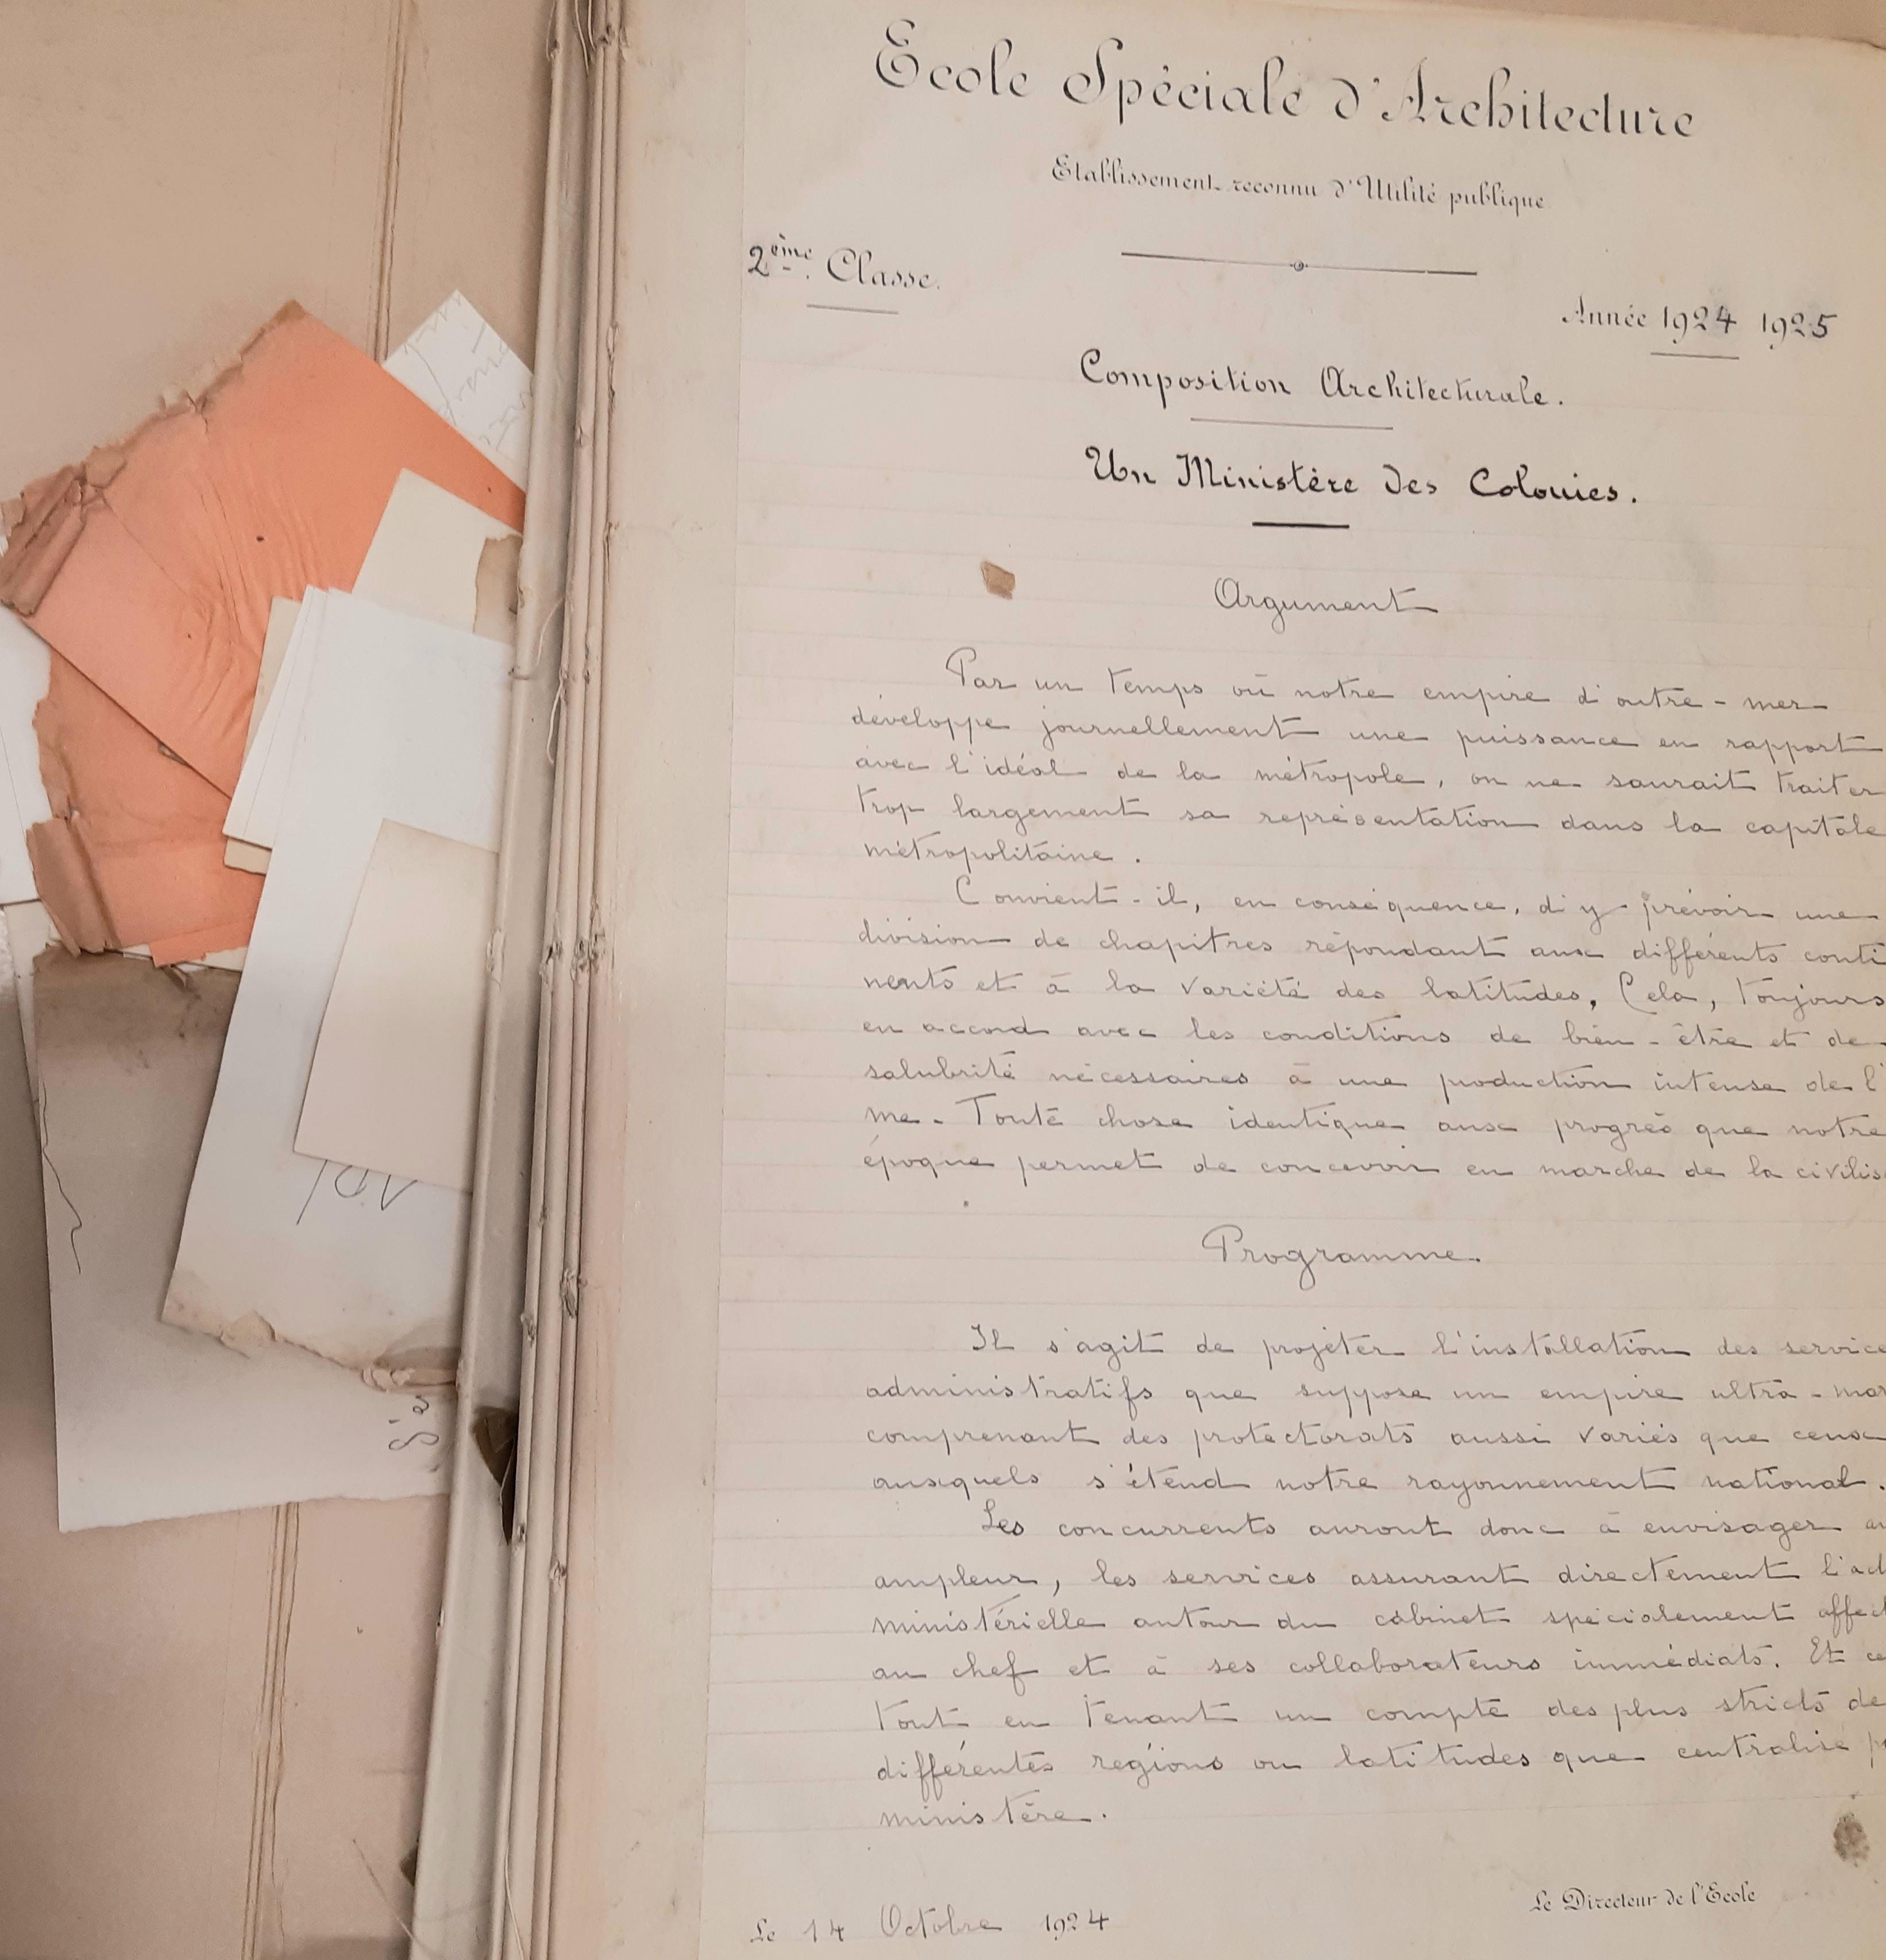 Ecole Spéciale d'Architecture
Etablissement reconnu d'Utilité publique
2ème Classe.
Année 1924 1925
Composition Architecturale.
Un Ministère des Colonies.
Argument
Par un temps où notre empire d'outre-mer
développe journellement une puissance en rapport
avec l'idéal de la métropole, on ne saurait traiter
trop largement sa représentation dans la capitale
métropolitaine.
Convient-il, en conséquence, d'y prévoir une
division de chapitres répondant aux différents conti
nents et à la variété des latitudes, Cela, toujours
en accord avec les conditions de bien-être et de
salubrité nécessaires à une production intense de l'
me. Toute chose identique aux progrès que notre
époque permet de concevoir en marche de la civilis
Programme.
Il s'agit de projeter l'installation des service
administratifs que suppose un empire ultra-mar
comprenant des protectorats aussi variés que ceux
auxquels s'étend notre rayonnement national.
Les concurrents auront donc à envisager
ampleur, les services assurant directement l'ad
ministérielle autour du cabinet spécialement affect
au chef et à ses collaborateurs immédiats. Et ce
tout en tenant un compte des plus stricts de
différentes régions ou latitudes que centralise
ministère.
Le Directeur de l'Ecole
Le 14 Octobre 1924